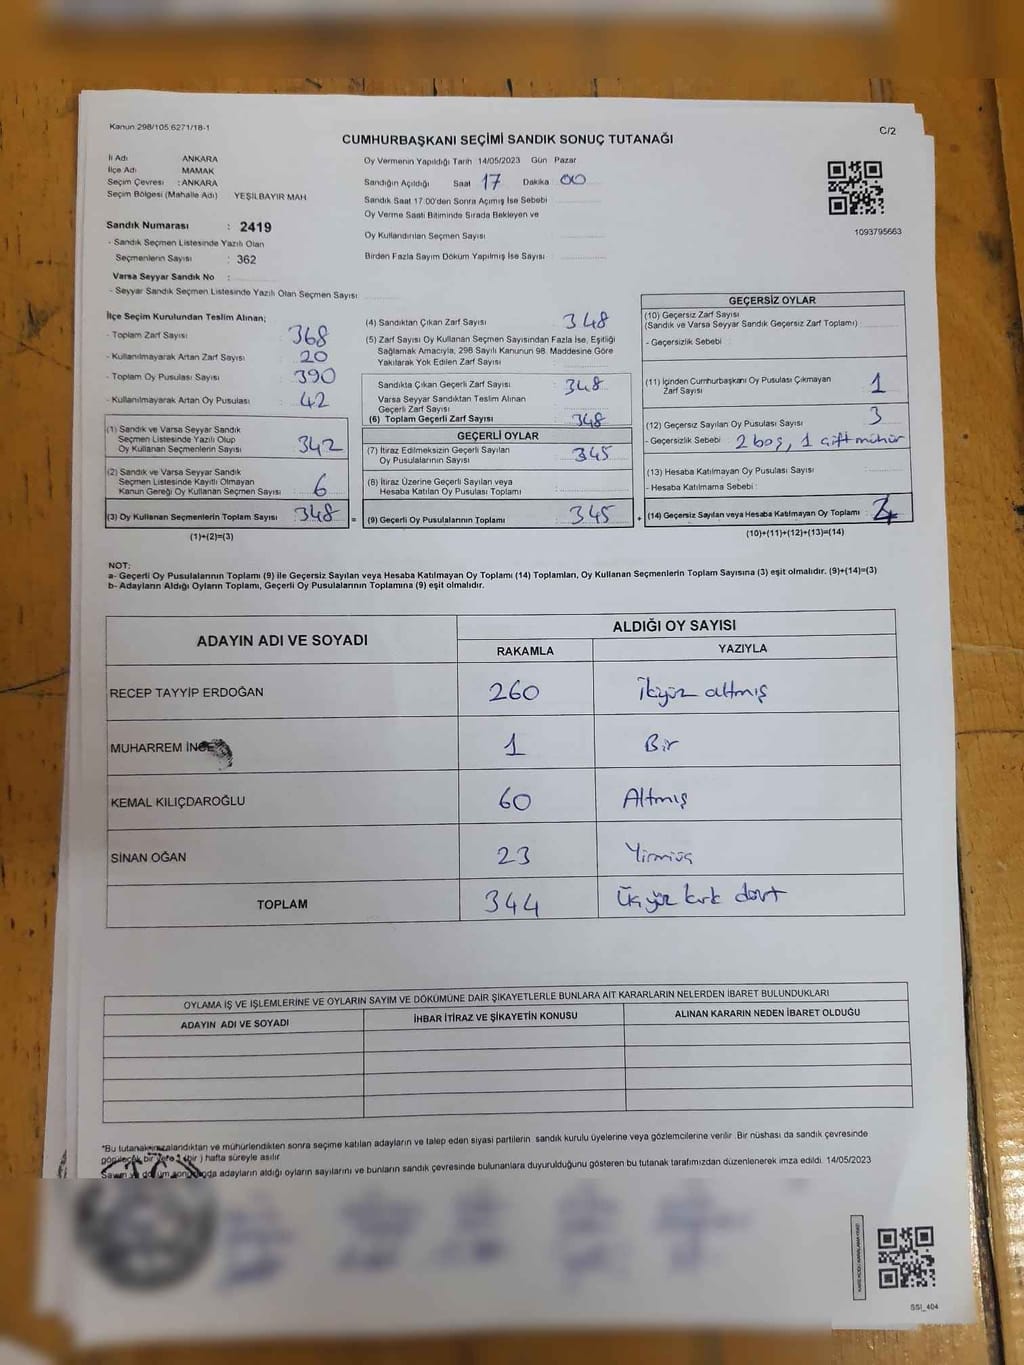 Kanun 298/105 6271/18-1
C/2
CUMHURBAŞKANI SEÇİMİ SANDIK SONUÇ TUTANAĞI
İl Adı ANKARA
İlçe Adı MAMAK
Seçim Çevresi : ANKARA
Seçim Bölgesi (Mahalle Adı) YEŞİLBAYIR MAH
Sandık Numarası : 2419
- Sandık Seçmen Listesinde Yazılı Olan
Seçmenlerin Sayısı : 362
Varsa Seyyar Sandık No :
- Seyyar Sandık Seçmen Listesinde Yazılı Olan Seçmen Sayısı
Oy Vermenin Yapıldığı Tarih 14/05/2023 Gün Pazar
Sandığın Açıldığı Saat 17 Dakika 00
Sandık Saat 17.00'den Sonra Açımış İse Sebebi
Oy Verme Saati Bitiminde Sırada Bekleyen ve
Oy Kullandırılan Seçmen Sayısı
Birden Fazla Sayım Döküm Yapılmış İse Sayısı
1093795663
İlçe Seçim Kurulundan Teslim Alınan;
- Toplam Zarf Sayısı : 368
- Kullanılmayarak Artan Zarf Sayısı : 20
- Toplam Oy Pusulası Sayısı : 390
- Kullanılmayarak Artan Oy Pusulası : 42
(1) Sandık ve Varsa Seyyar Sandık
Seçmen Listesinde Yazılı Olup
Oy Kullanan Seçmenlerin Sayısı : 342
(2) Sandık ve Varsa Seyyar Sandık
Seçmen Listesinde Kayıtlı Olmayan
Kanun Gereği Oy Kullanan Seçmen Sayısı : 6
(3) Oy Kullanan Seçmenlerin Toplam Sayısı : 348
(1)+(2)=(3)
(4) Sandıktan Çıkan Zarf Sayısı : 348
(5) Zarf Sayısı Oy Kullanan Seçmen Sayısından Fazla İse, Eşitliği
Sağlamak Amacıyla, 298 Sayılı Kanunun 98. Maddesine Göre
Yakılarak Yok Edilen Zarf Sayısı :
Sandıkta Çıkan Geçerli Zarf Sayısı : 348
Varsa Seyyar Sandıktan Teslim Alınan
Geçerli Zarf Sayısı :
(6) Toplam Geçerli Zarf Sayısı : 348
GEÇERLİ OYLAR
(7) İtiraz Edilmeksizin Geçerli Sayılan
Oy Pusulalarının Sayısı : 345
(8) İtiraz Üzerine Geçerli Sayılan veya
Hesaba Katılan Oy Pusulası Toplamı :
= (9) Geçerli Oy Pusulalarının Toplamı : 345 +
GEÇERSİZ OYLAR
(10) Geçersiz Zarf Sayısı
(Sandık ve Varsa Seyyar Sandık Geçersiz Zarf Toplamı) :
- Geçersizlik Sebebi :
(11) İçinden Cumhurbaşkanı Oy Pusulası Çıkmayan
Zarf Sayısı : 1
(12) Geçersiz Sayılan Oy Pusulası Sayısı : 3
- Geçersizlik Sebebi : 2 boş, 1 çift mühür
(13) Hesaba Katılmayan Oy Pusulası Sayısı
- Hesaba Katılmama Sebebi :
(14) Geçersiz Sayılan veya Hesaba Katılmayan Oy Toplamı : 4
(10)+(11)+(12)+(13)=(14)
NOT:
a- Geçerli Oy Pusulalarının Toplamı (9) ile Geçersiz Sayılan veya Hesaba Katılmayan Oy Toplamı (14) Toplamları, Oy Kullanan Seçmenlerin Toplam Sayısına (3) eşit olmalıdır. (9)+(14)=(3)
b- Adayların Aldığı Oyların Toplamı, Geçerli Oy Pusulalarının Toplamına (9) eşit olmalıdır.
ADAYIN ADI VE SOYADI
ALDIĞI OY SAYISI
RAKAMLA YAZIYLA
RECEP TAYYİP ERDOĞAN 260 İkiyüz altmış
MUHARREM İNCE 1 Bir
KEMAL KILIÇDAROĞLU 60 Altmış
SİNAN OĞAN 23 Yirmiüç
TOPLAM 344 Üçyüz kırk dört
OYLAMA İŞ VE İŞLEMLERİNE VE OYLARIN SAYIM VE DÖKÜMÜNE DAİR ŞİKAYETLERLE BUNLARA AİT KARARLARIN NELERDEN İBARET BULUNDUKLARI
ADAYIN ADI VE SOYADI İHBAR İTİRAZ VE ŞİKAYETİN KONUSU ALINAN KARARIN NEDEN İBARET OLDUĞU
*Bu tutanak imzalandıktan ve mühürlendikten sonra seçime katılan adayların ve talep eden siyasi partilerin sandık kurulu üyelerine veya gözlemcilerine verilir .Bir nüshası da sandık çevresinde
görülecek bir yere 1 (bir ) hafta süreyle asılır
adayların aldığı oyların sayılarını ve bunların sandık çevresinde bulunanlara duyurulduğunu gösteren bu tutanak tarafımızdan düzenlenerek imza edildi. 14/05/2023
SSI_404